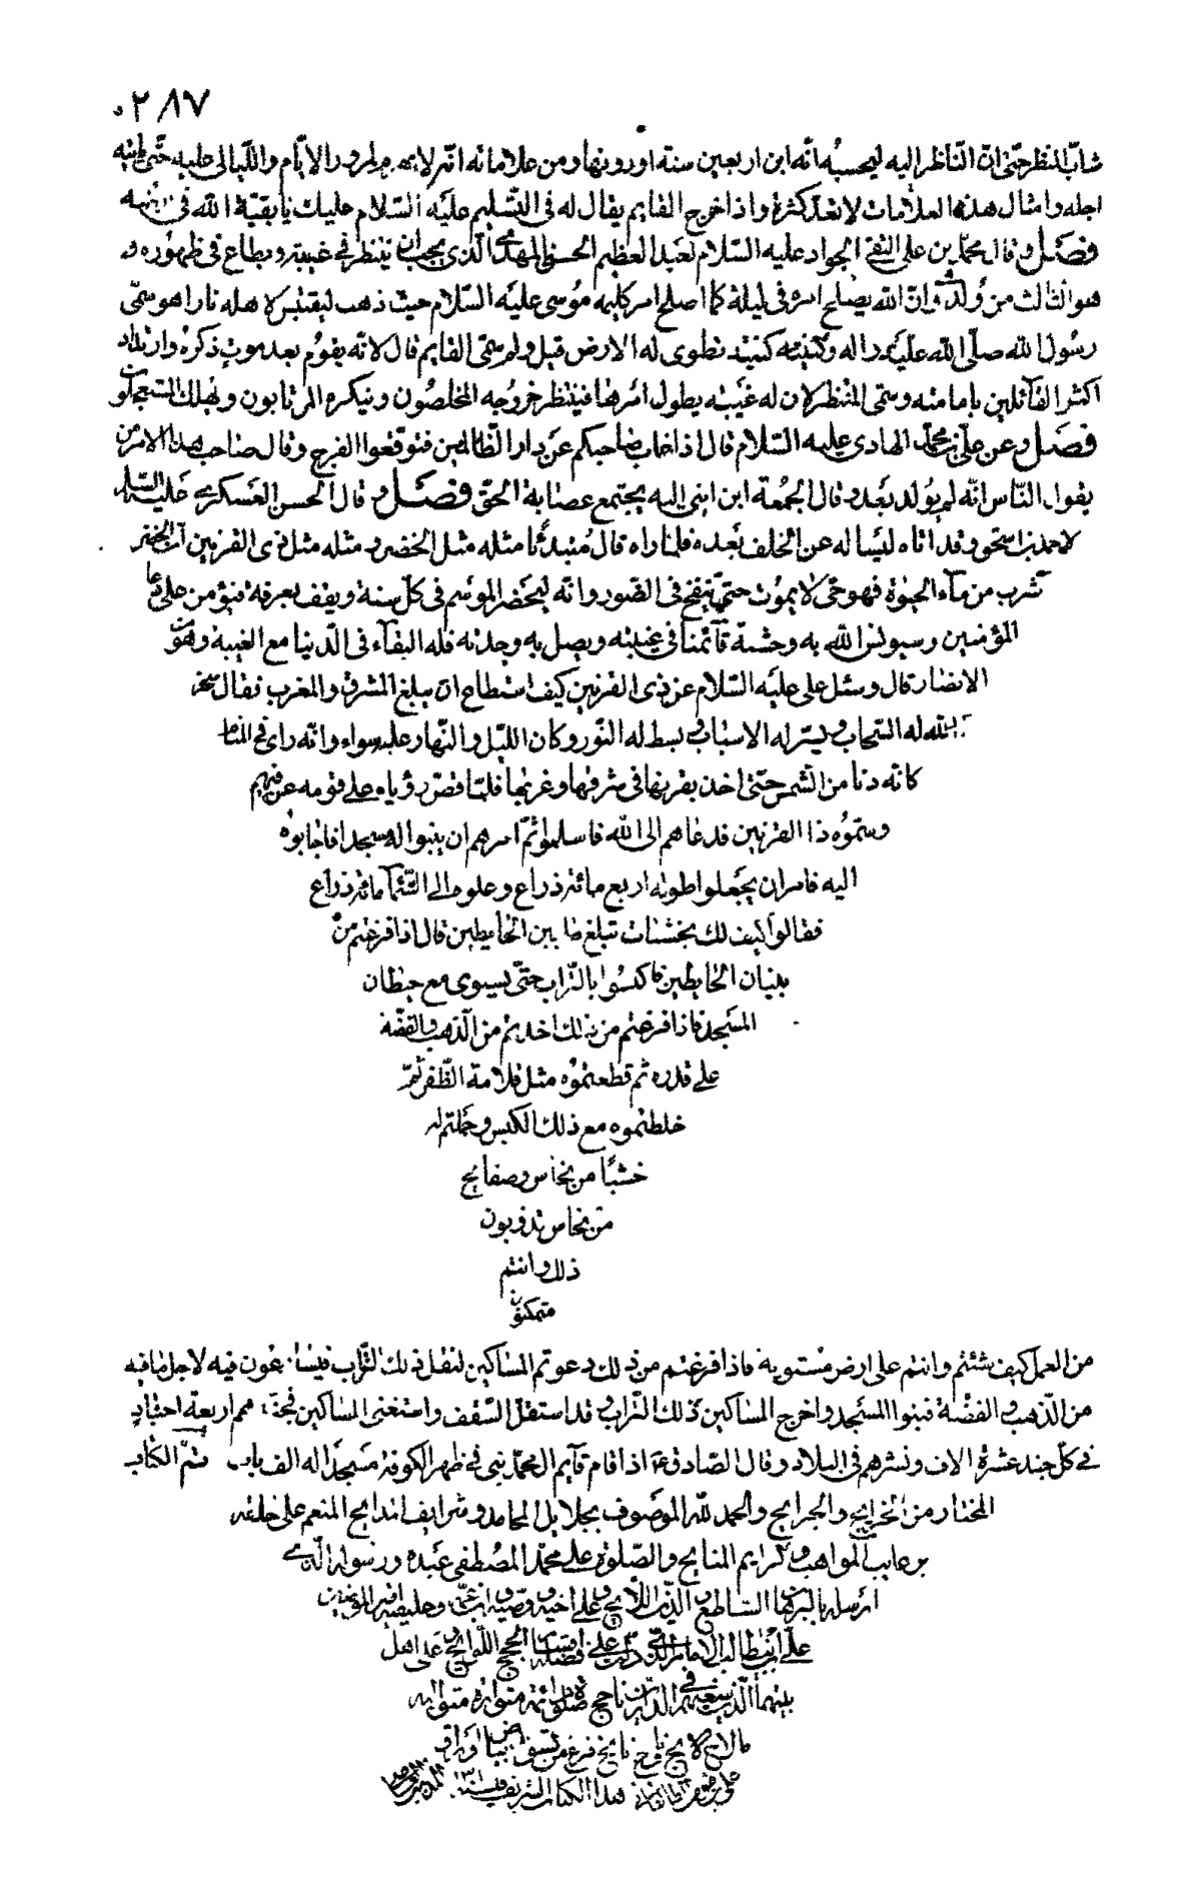 ٢٨٧
شاب المنظر حتى ان الناظر اليه ليحسبه انه ابن اربعين سنة او دونها ومن علاماته انه لا يهرم لمرور الايام والليالى عليه حتى ياتيه
اجله وامثال هذه العلامات لا تعد كثرة واذا خرج القايم يقال له فى التسليم عليه السلام عليك يا بقية الله فى ارضه
فصل وقال محمد بن على التقى الجواد عليه السلام لعبد العظيم الحسنى المهدى الذى يجب ان ينتظر فى غيبته ويطاع فى ظهوره و
هو الثالث من ولدى وان الله يصلح امره فى ليلة كما اصلح امر كليمه موسى عليه السلام حيث ذهب ليقتبس لاهله نارا هو سمى
رسول الله صلى الله عليه واله وكنيته كنيته تطوى له الارض قيل ولم سمى القايم قال لانه يقوم بعد موت ذكره وارتداد
اكثر القائلين بامامته وسمى المنتظر لان له غيبة يطول امرها فينتظر خروجه المخلصون وينكره المرتابون ويهلك المستعجلون
فصل وعن على بن محمد الهادى عليه السلام قال اذا غاب صاحبكم عن دار الظالمين فتوقعوا الفرج وقال صاحب هذا الامر من
يقول الناس انه لم يولد بعد وقال الجمعة ابن ابنى اليه يجتمع عصابة الحق فصل وقال الحسن العسكرى عليه السلام
لاحمد بن اسحق وقد اتاه ليساله عن الخلف بعده فلما راه قال مبتدئا مثله مثل الخضر ومثله مثل ذى القرنين ان الخضر
شرب من ماء الحيوة فهو حى لا يموت حتى ينفخ فى الصور وانه ليحضر الموسم فى كل سنة ويقف بعرفة فيؤمن على دعاء
المؤمنين وسيونس الله به وحشة قائمنا فى غيبته ويصل به وحدته فله البقاء فى الدنيا مع الغيبة
الابصار قال وسئل على عليه السلام عن ذى القرنين كيف استطاع ان يبلغ المشرق والمغرب فقال سخر
الله له السحاب ويسر له الاسباب وبسط له النور وكان الليل والنهار عليه سواء وانه راى فى المنام
كانه دنا من الشمس حتى اخذ بقرنها فى شرقها وغربها فلما قص رؤياه على قومه عرفهم
وسموه ذا القرنين فدعاهم الى الله فاسلموا ثم امرهم ان يبنوا له مسجدا فاجابوه
اليه فامر ان يجعلوا طوله اربع مائة ذراع وعلوه الى السماء مائة ذراع
فقالوا كيف لك بخشبات تبلغ ما بين الحايطين قال اذا فرغتم من
بنيان الحايطين فاكبسوا بالتراب حتى يسوى مع حيطان
المسجد فاذا فرغتم من ذلك اخذتم من الذهب والفضة
على قدره ثم قطعتموه مثل قلامة الظفر ثم
خلطتموه مع ذلك الكبس وعملتم له
خشبا من نحاس وصفايح
من نحاس تذوبون
ذلك وانتم
متمكنون
من العمل كيف شئتم وانتم على ارض مستوية فاذا فرغتم من ذلك دعوتم المساكين لنقل ذلك التراب فيسارعون فيه لاجل ما فيه
من الذهب والفضة فبنوا المسجد واخرج المساكين ذلك التراب وقد استقل السقف واستغنى المساكين فجندهم اربعة اجناد
فى كل جند عشرة الاف ونشرهم فى البلاد وقال الصادق ع اذا قام قايم ال محمد بنى فى ظهر الكوفة مسجدا له الف باب تم الكتاب
المختار من الخرايج والجرايح والحمد لله الموصوف بجلايل المحامد وشرايف المدايح المنعم على خلقه
برغايب المواهب وكرايم المنايح والصلوة على محمد المصطفى عبده ورسوله الذى
ارسله بالبرهان الساطع والدين اللايح وعلى اخيه ووصيه وابن عمه وخليفته امير المؤمنين
على ابن ابيطالب الامام الذى
بينهما
ما لاح لايح تاريخ فرغ من
هذا الكتاب الشريف فى سنة